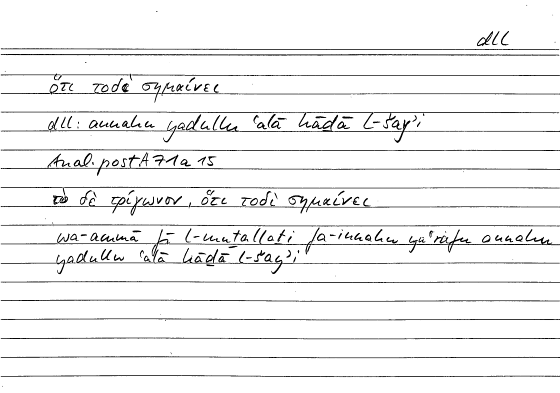 dll
ὅτι τοδὶ σημαίνει
dll: annahu yadullu ʿalā hāḏā l-šayʾi
Anal. post A 71 a 15
τὸ δὲ τρίγωνον, ὅτι τοδὶ σημαίνει
wa-ammā fī l-muṯallaṯi fa-innahu yaʿrifu annahu
yadullu ʿalā hāḏā l-šayʾi